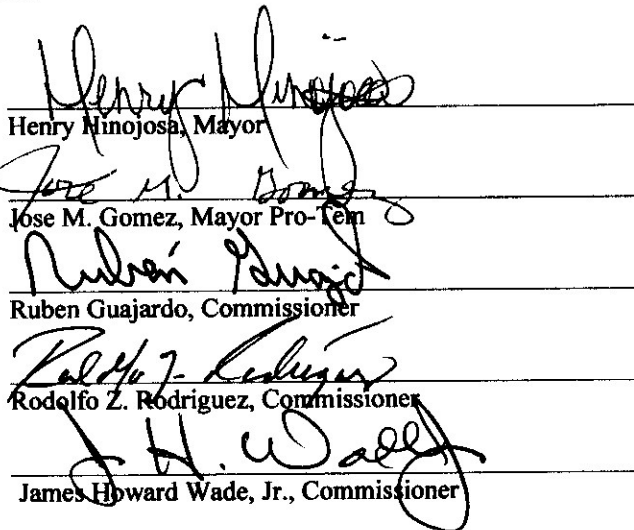 Henry Hinojosa
Henry Hinojosa, Mayor
José M. Gomez
Jose M. Gomez, Mayor Pro-Tem
Rubén Guajardo
Ruben Guajardo, Commissioner
Rodolfo Z. Rodriguez
Rodolfo Z. Rodriguez, Commissioner
J. H. Wade Jr
James Howard Wade, Jr., Commissioner